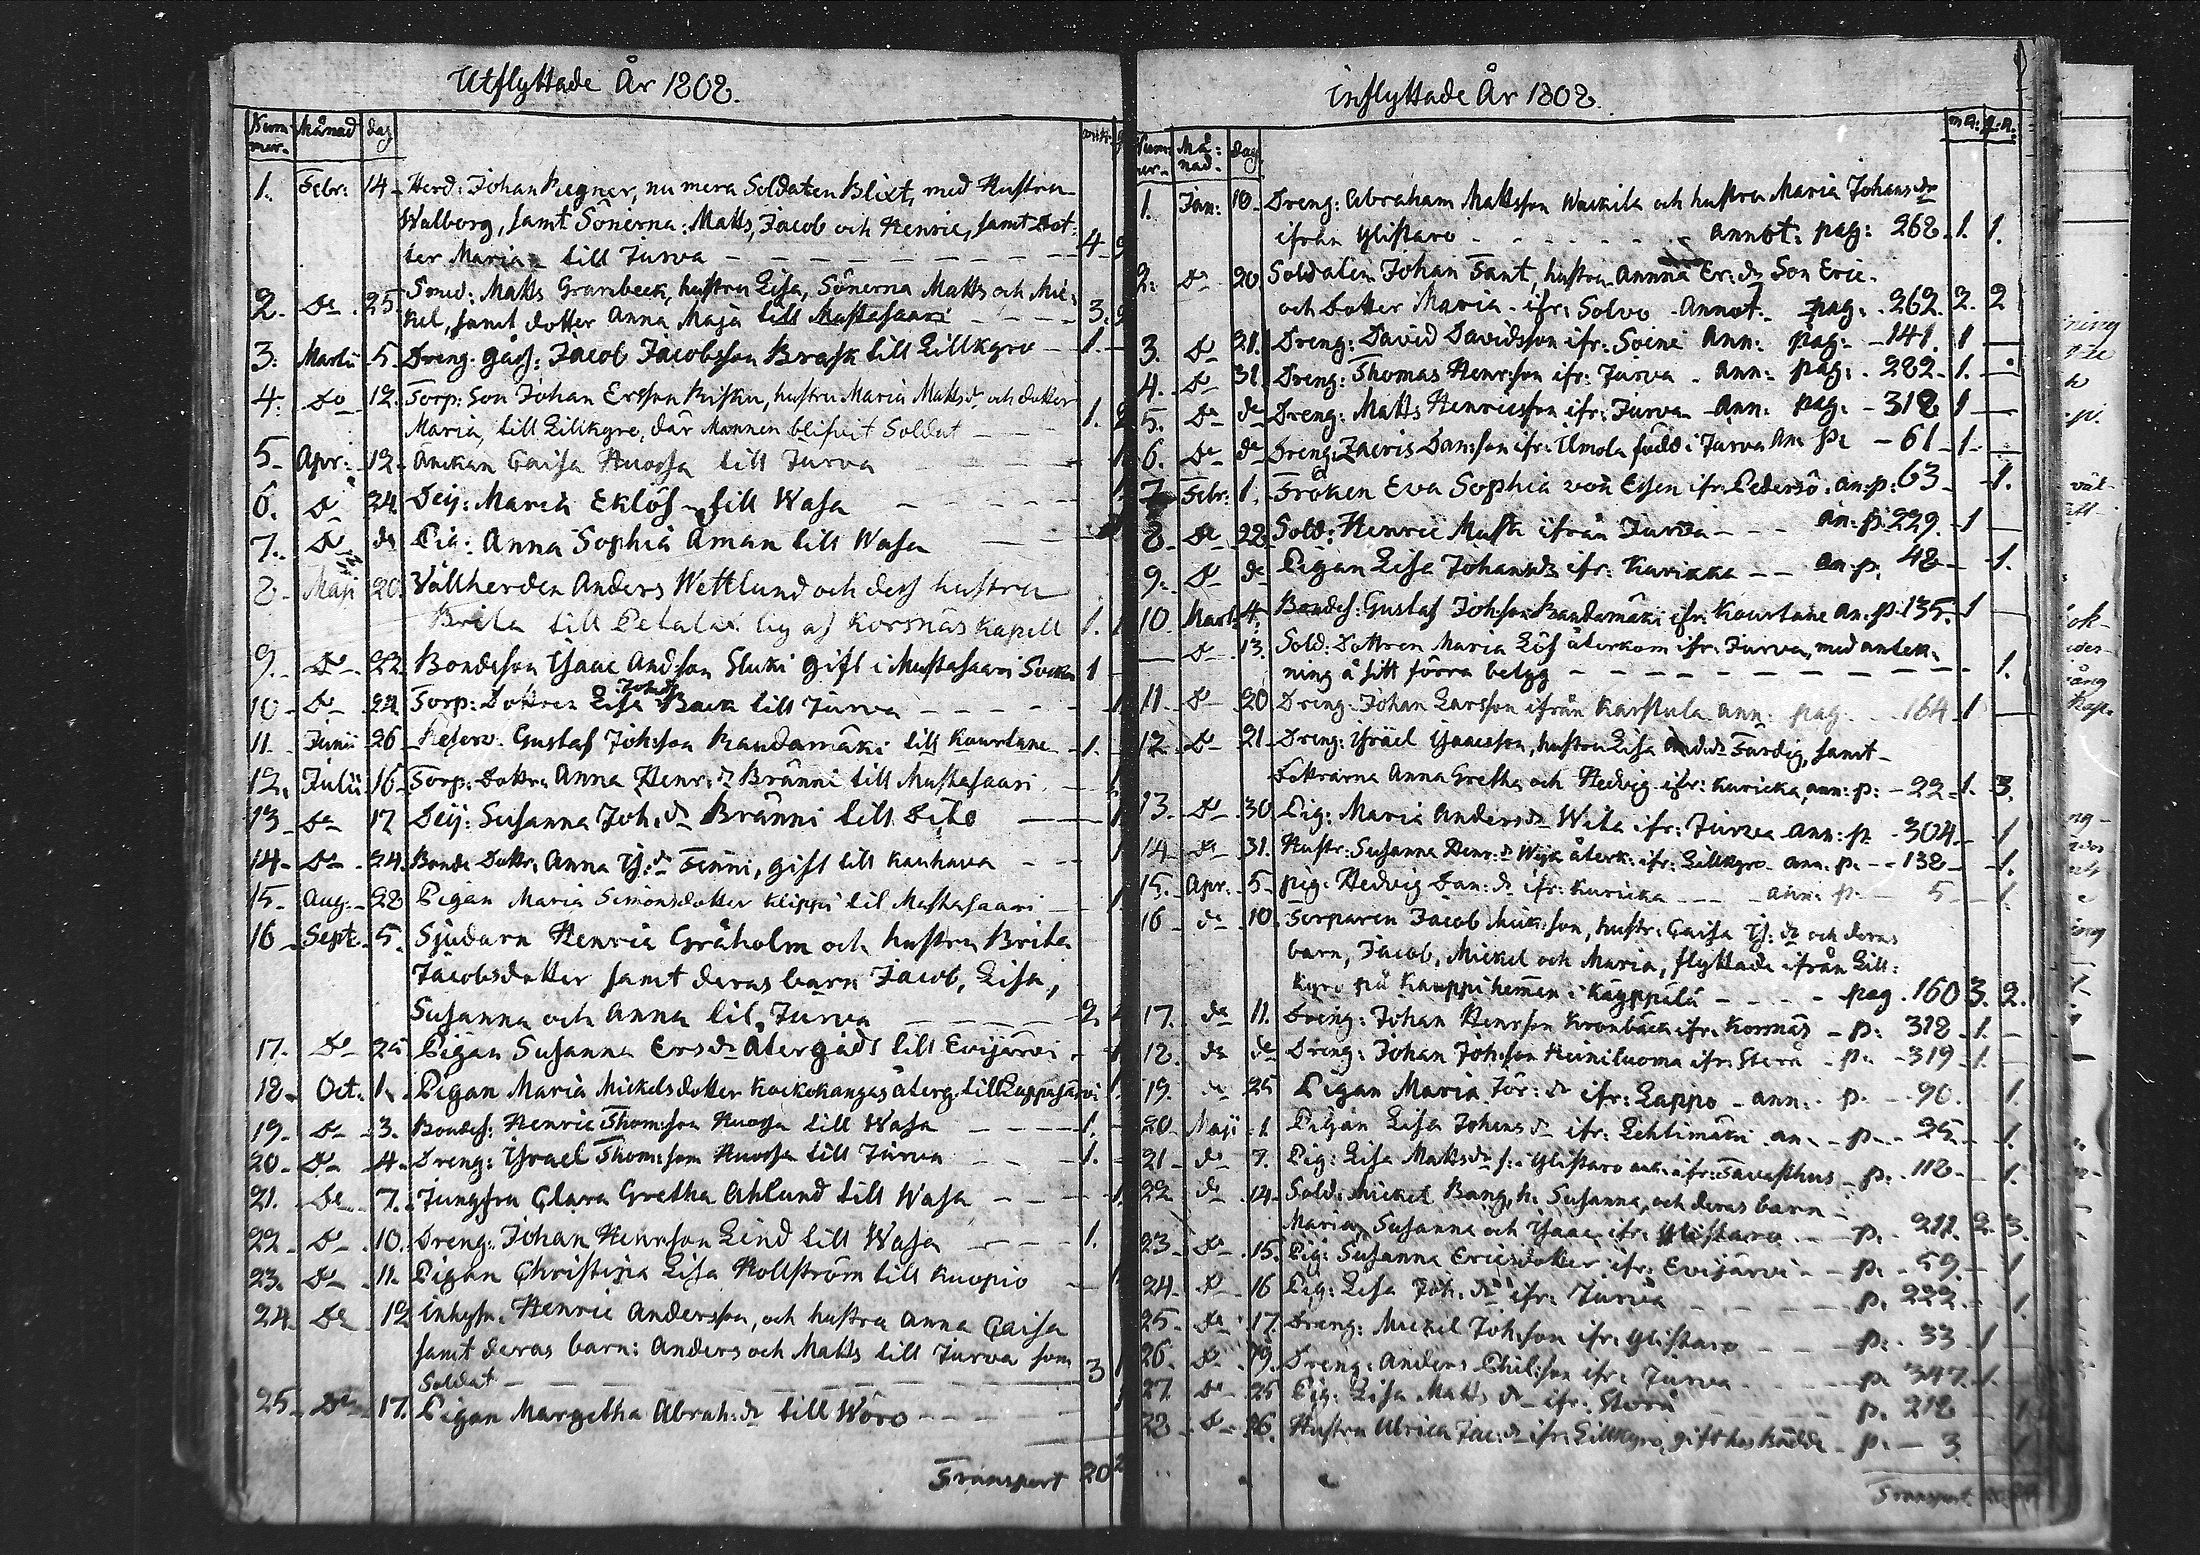 Utflyttade År 1808.
Num mer. Månad dag
1. Febr: 14 Herd: Johan Regner, nu mera Soldaten Blixt, med Hustru
Walborg, samt Sönerna: Matts, Jacob och Henric, samt Dot-
ter Maria till Jurva 4
2. Do 25. Smed: Matts Granbeck, hustru Lisa, Sönerna Matts och Mic-
kel, samt dotter Anna Maja till Mustasaari 3.
3. Martii 5. Dreng. gås: Jacob Jacobsson Brask till Lillkyro 1.
4. Do 12. Torp: Son Johan Ersson Riska, hustru Maria Matts dr och dotter
Maria, till Lillkyro, där Mannen blifvit Soldat 1. 2
5. Apr: 12. Ankan Caisa Huossa till Jurva 1
6. Do 24 Pig: Maria Eklöf till Wasa
7. Do do Pig: Anna Sophia Åman till Wasa
8. Maji 20. Vallherden Anders Wettlund och dess hustru
Brita till Petalax by af Korsnäs Kapell 1.
9. Do 22 Bondeson Isaac Andsson Sluki gift i Mustasaari Socken 1
10 Do 24 Torp: Dottren Lisa Johdr Back till Jurva 1
11. Junii 26 Reserv. Gustaf Johsson Randamäki till Kourtane 1.
12. Julii 16 Torp: Dottr: Anna Henr: dr Bränni till Mustasaari
13 Do 17 Pig: Susanna Joh: dr Bränni till Dito 1
14 Do 24. Bonde Dottr: Anna Is: dr Finni, gift till Kauhava 1
15 Aug. 28 Pigan Maria Simonsdotter Klippi til Mustasaari 1
16 Sept. 5. Sjudarn Henric Gråholm och hustru Brita
Jacobsdotter samt deras barn Jacob, Lisa,
Susanna och Anna til Jurva 2.
17. Do 25 Pigan Susanna Ersdr återgådt till Evijärvi 1
18. Oct. 1. Pigan Maria Mickelsdotter Kackokangas återg. till Lappajärvi 1
19 Do 3. Bondes: Henric Thomsson Huossa till Wasa 1.
20 Do 4. Dreng: Israel Thomsson Huossa till Jurva 1.
21. Do 7. Jungfru Clara Gretha Ahlund till Wasa 1
22 Do 10. Dreng: Johan Henrsson Lind till Wasa 1.
23. Do 11. Pigan Christina Lisa Hollström till Kuopio
24. Do 12 Inhyse Henric Andersson, och hustru Anna Caisa
samt deras barn: Anders och Matts till Jurva som
Soldat 3 1
25 Do 17. Pigan Margetha Abrah: dr till Wörå 1
Transport 20
Inflyttade År 1808.
Num mer. Må: nad. dag. m.k: q.k:
1. Jan: 10 Dreng: Abraham Mattsson Wackila och hustru Maria Johans dr
ifrån Ylistaro annot: pag: 268. 1. 1.
2. Do 20 Soldaten Johan Fant, hustru Annna Er: dr Son Eric
och Dotter Maria ifr: Solvo Annot. pag. 262. 2. 2
3. Do 21. Dreng: David Davidsson ifr: Soini Ann: pag: 141. 1
4. Do 31. Dreng: Thomas Henrsson ifr: Jurva Ann: pag: 282 1.
5. Do do Dreng: Matts Henricsson ifr: Jurva Ann: pag: 318 1
6. Do do Dreng: Zacris Damsson ifr: Ilmola född i Jurva An: p: 61 1
7 Febr: 1. Fröken Eva Sophia von Essen ifr: Pedersö. an: p: 63 1.
8 Do 28 Sold: Henric Musk ifrån Jurva an: p. 229. 1
9. Do do Pigan Lisa Johansdr ifr: Kurikka an: p. 48 1.
10. Mart: 4. Bondes: Gustaf Johsson Randamäki ifr: Kourtane an: p. 135. 1
Do 13. Sold: Dottren Maria Löf återkom ifr: Jurva, med anteck-
ning å sitt förra betyg 1.
11. Do 20 Dreng. Johan Larsson ifrån Karstula ann: pag. 164 1
12. Do 21 Dreng: Israel Isaacsson, hustru Lisa Andrdr Färdig, samt
Döttrarna Anna Gretha och Hedvig ifr: Kuricka, ann: p: 22 1. 3.
13. Do 30 Pig: Maria Andersdr Wita ifr: Jurva ann: p. 304 1
14 do 31. Hustr: Susanna Henr: dr Wijk återk: ifr: Lillkyro ann: p. 138 1.
15. Apr. 5 pig: Hedvig Dan: dr ifr: Kuricka ann: p. 5 1.
16 do 10. Torparen Jacob Micksson, hustr: Caisa Is: dr och deras
barn, Jacob, Mickel och Maria, flyttade ifrån Lill:
kyro på Kauppi hemman i Käyppälä pag. 160 3. 2.
17. do 11. Dreng: Johan Henrsson Kronbäck ifr. Korsnäs p: 318 1.
18. do do Dreng: Johan Johsson Heiniluoma ifr: Storå p: 319 1.
19. do 25 Pigan Maria Jör: dr ifr: Lappo ann: p. 90. 1.
20 Maji 1 Pigan Lisa Johans dr ifr: Lehtimäki an: p. 25 1.
21 do 7. Pig: Lisa Mattsdr f: i Ylistaro ank: ifr: Tavasthus p. 118 1.
22 do 14 Sold: Mickel Bang, h: Susanna, och deras barn
Maria, Susanna och Isaac ifr: Ylistaro p. 211. 2. 3.
23 Do 15. Pig: Susanna Ericsdotter ifr: Evijärvi p. 59. 1
24. Do 16 Pig: Lisa Joh. dr ifr: Jurva p. 222. 1.
25. Do 17. Dreng: Mickel Johsson ifr: Ylistaro p. 33 1
26. Do 19. Dreng: Anders Philsson ifr: Jurva p. 347. 1.
27. Do 25 Pig: Lisa Matts dr ifr: Storå p. 218 1
28 Do 26. Hustru Ulrica Jac: dr ifr: Lillkyro, gift hos Rädde p. 3 1
Transport